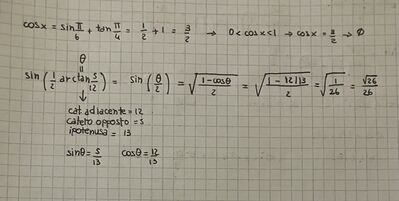 cosx = sin π/6 + tan π/4 = 1/2 + 1 = 3/2 → 0 < cosx < 1 → cosx = 3/2 → ∅
θ
=
sin (1/2 arctan 5/12) = sin (θ/2) = √((1-cosθ)/2) = √((1-12/13)/2) = √(1/26) = √26/26
↓
cat. adiacente = 12
cateto opposto = 5
ipotenusa = 13
sinθ = 5/13 cosθ = 12/13